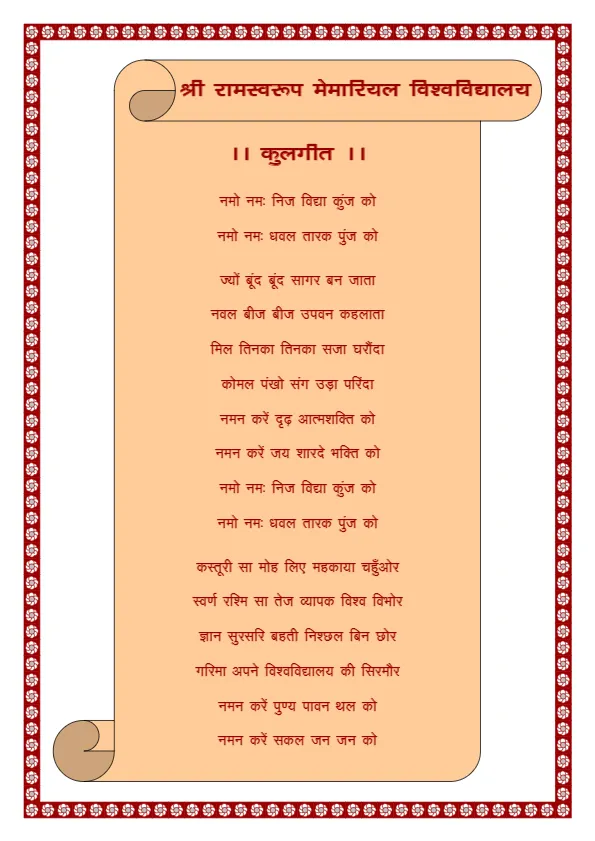 श्री रामस्वरूप मेमोरियल विश्वविद्यालय
।। कुलगीत ।।
नमो नमः निज विद्या कुंज को
नमो नमः धवल तारक पुंज को
ज्यों बूंद बूंद सागर बन जाता
नवल बीज बीज उपवन कहलाता
मिल तिनका तिनका सजा घरौंदा
कोमल पंखो संग उड़ा परिंदा
नमन करें दृढ़ आत्मशक्ति को
नमन करें जय शारदे भक्ति को
नमो नमः निज विद्या कुंज को
नमो नमः धवल तारक पुंज को
कस्तूरी सा मोह लिए महकाया चहुँओर
स्वर्ण रश्मि सा तेज व्यापक विश्व विभोर
ज्ञान सुरसरि बहती निश्छल बिन छोर
गरिमा अपने विश्वविद्यालय की सिरमौर
नमन करें पुण्य पावन थल को
नमन करें सकल जन जन को